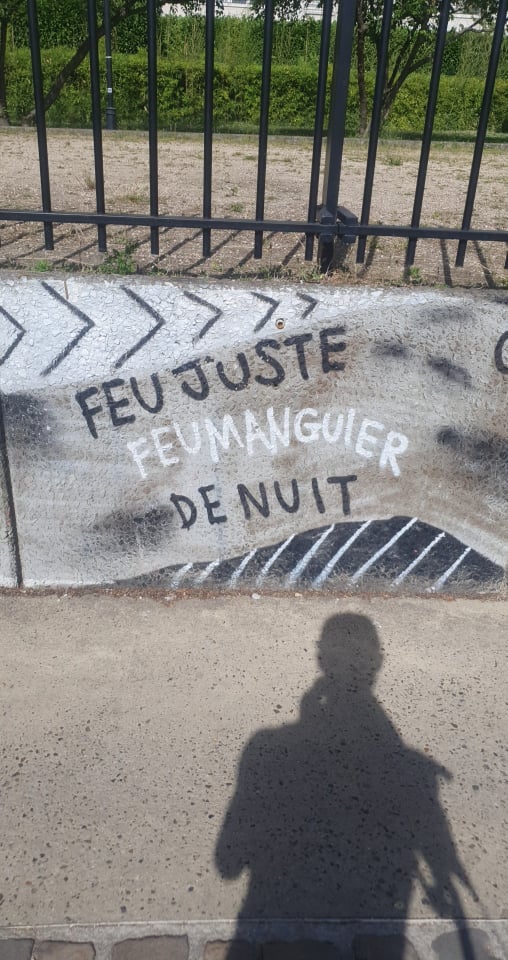 FEU JUSTE
FEUMANGUIER
DE NUIT